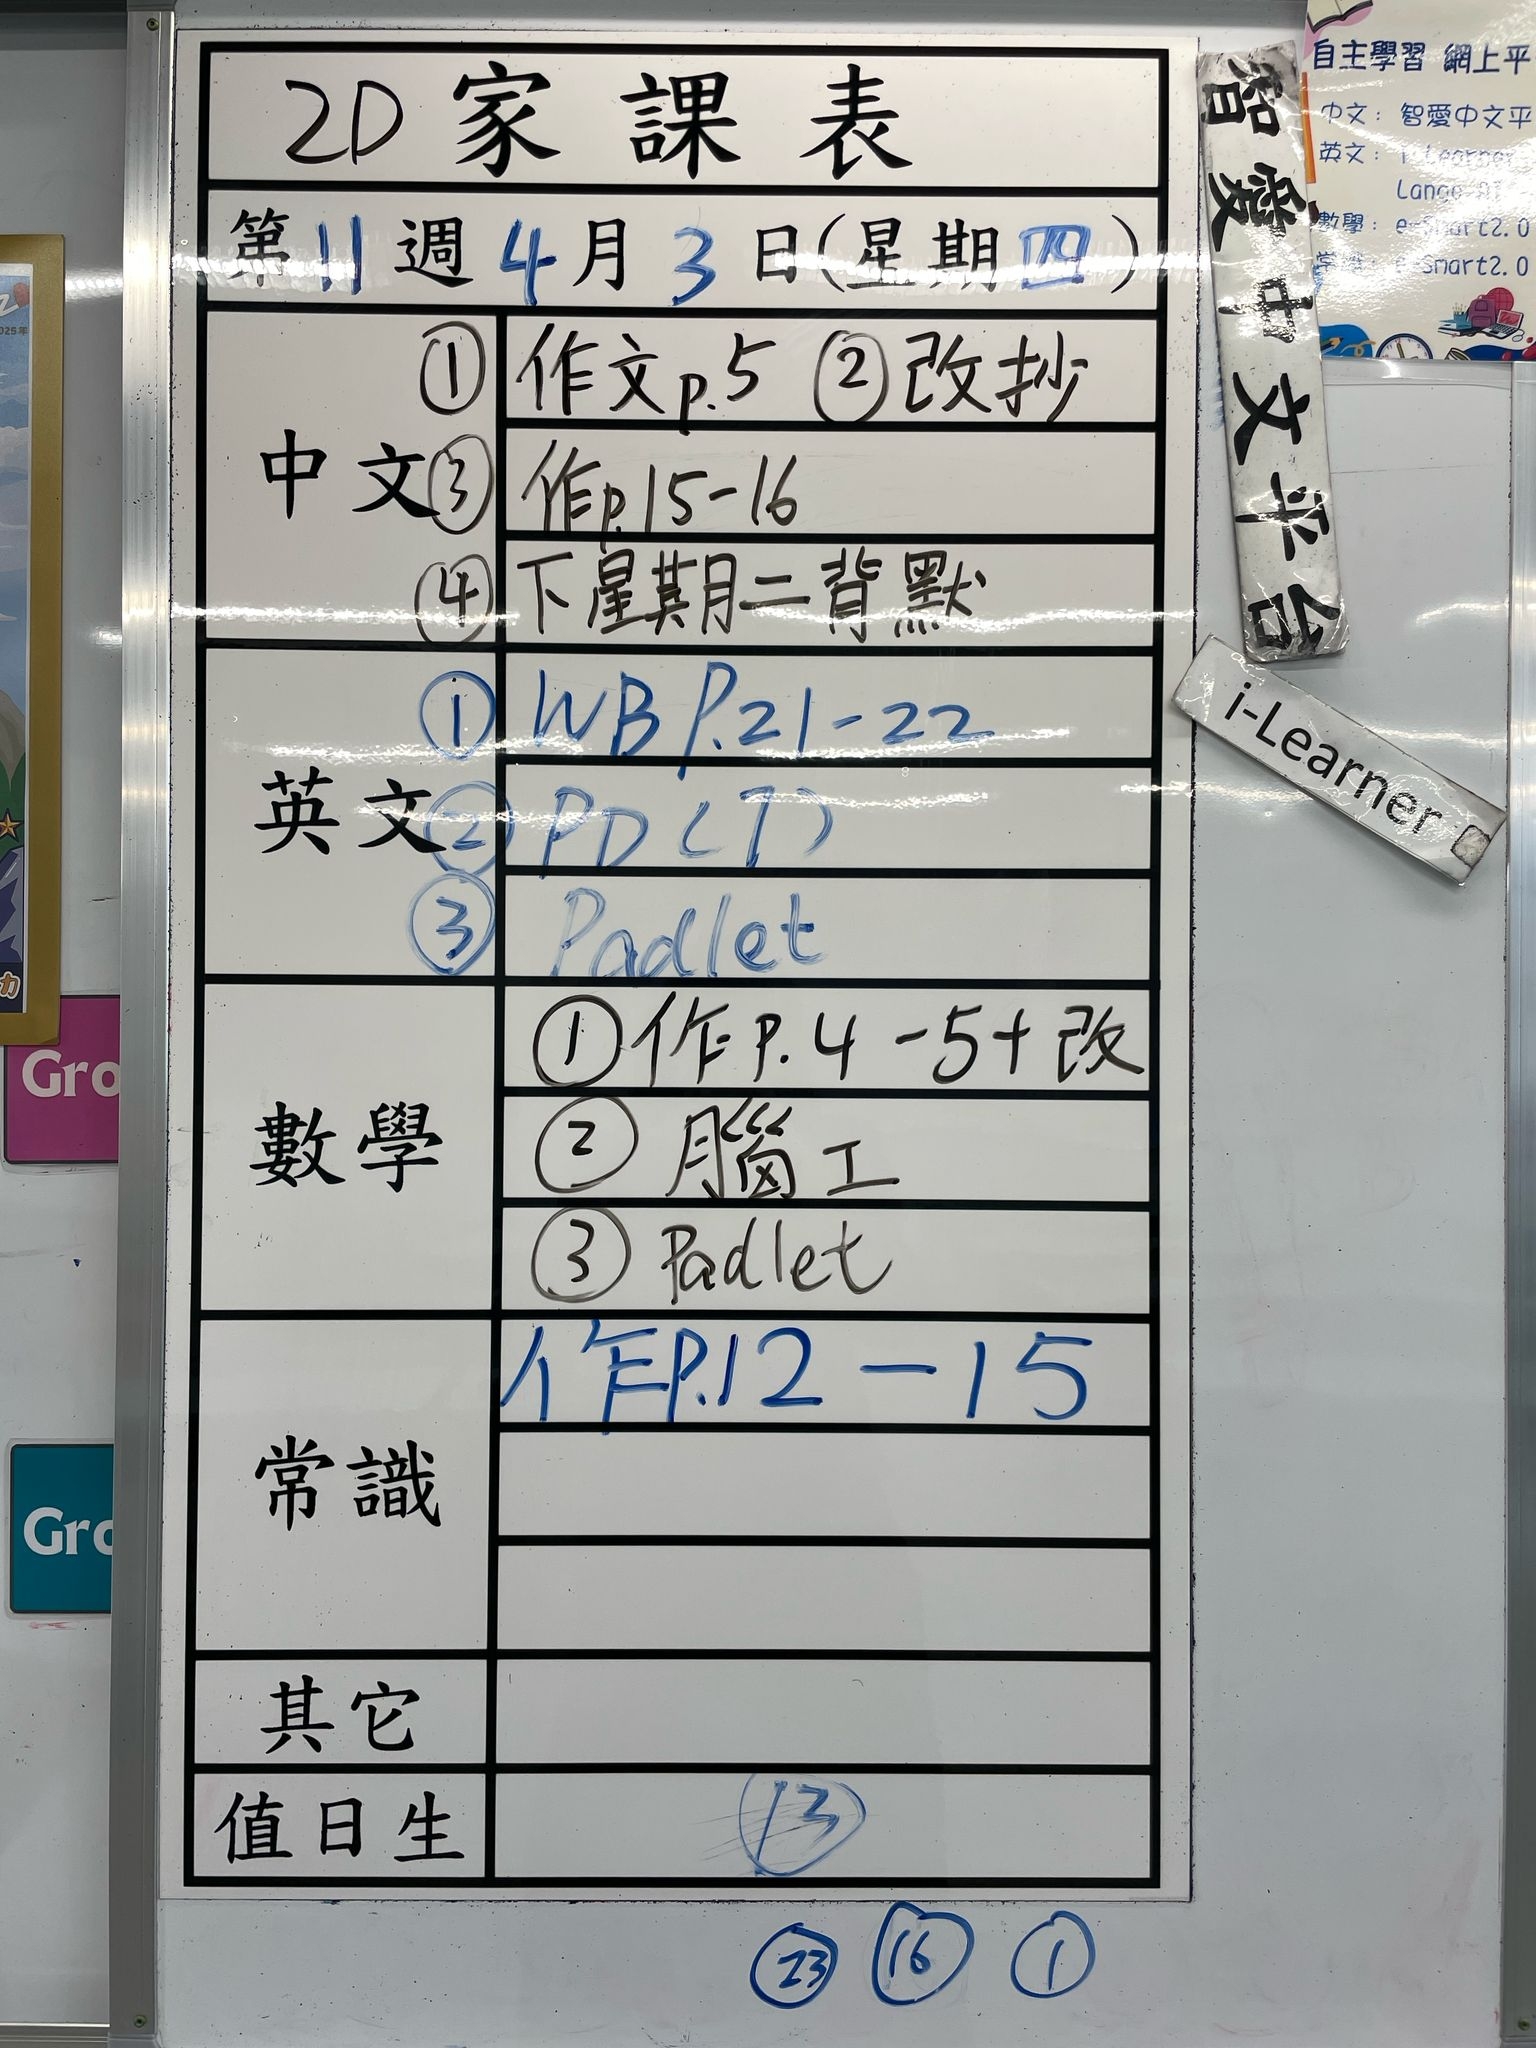 2D 家課表
第11週4月3日(星期四)
中文
① 作文p.5 ②改抄
③ 作p.15-16
④ 下星期二背默
英文
① WB P.21-22
② PD(7)
③ Padlet
數學
①作P.4-5+改
② 腦工
③ Padlet
常識
作P.12-15
其它
值日生
13
23 16 1
智愛中文平台
i-Learner
自主學習 網上平
中文: 智愛中文平
英文: i-Learner
數學: e-Smart2.0
2025年
力
Gro
Gro